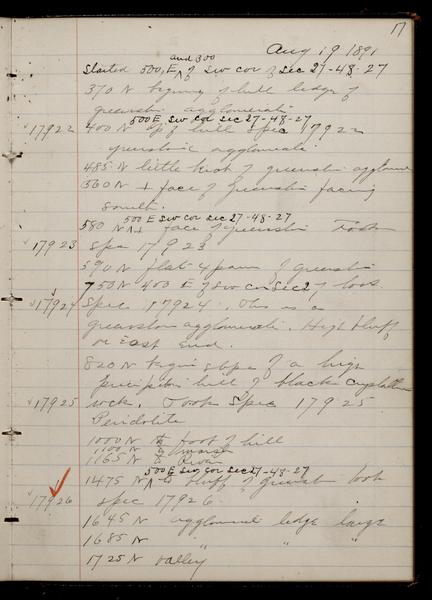 17
Aug 19 1891
and 300
Started 500 E of sw cor of sec 27-48-27
370 N begining of hill ledge of
greenstn agglomerate
500 E sw cor sec 27-48-27
17922 400 N top of hill spec 17922
greenstone agglomerate
485 N little knob of greenstn agglom
560 N + face of greenstn facing
south.
500 E sw cor sec 27-48-27
580 N face of greenstn Took
17923 spec 17923
590 N flat + pam of greenstn
750 N 400 E of sw cor sec 27 took
17924 Spec 17924. This is a
greenstone agglomerate. High bluff
on East end.
820 N begin slope of a high
precipitous hill of black crystalline
17925 rock. Took Spec 17925
Peridotite
1000 N to foot of hill
1100 N to
1165 N to River
500 E sw cor sec 27-48-27
1475 N to bluff of greenstn took
17926 spec 17926
1645 N agglomerate ledge large
1685 N " " "
1725 N valley